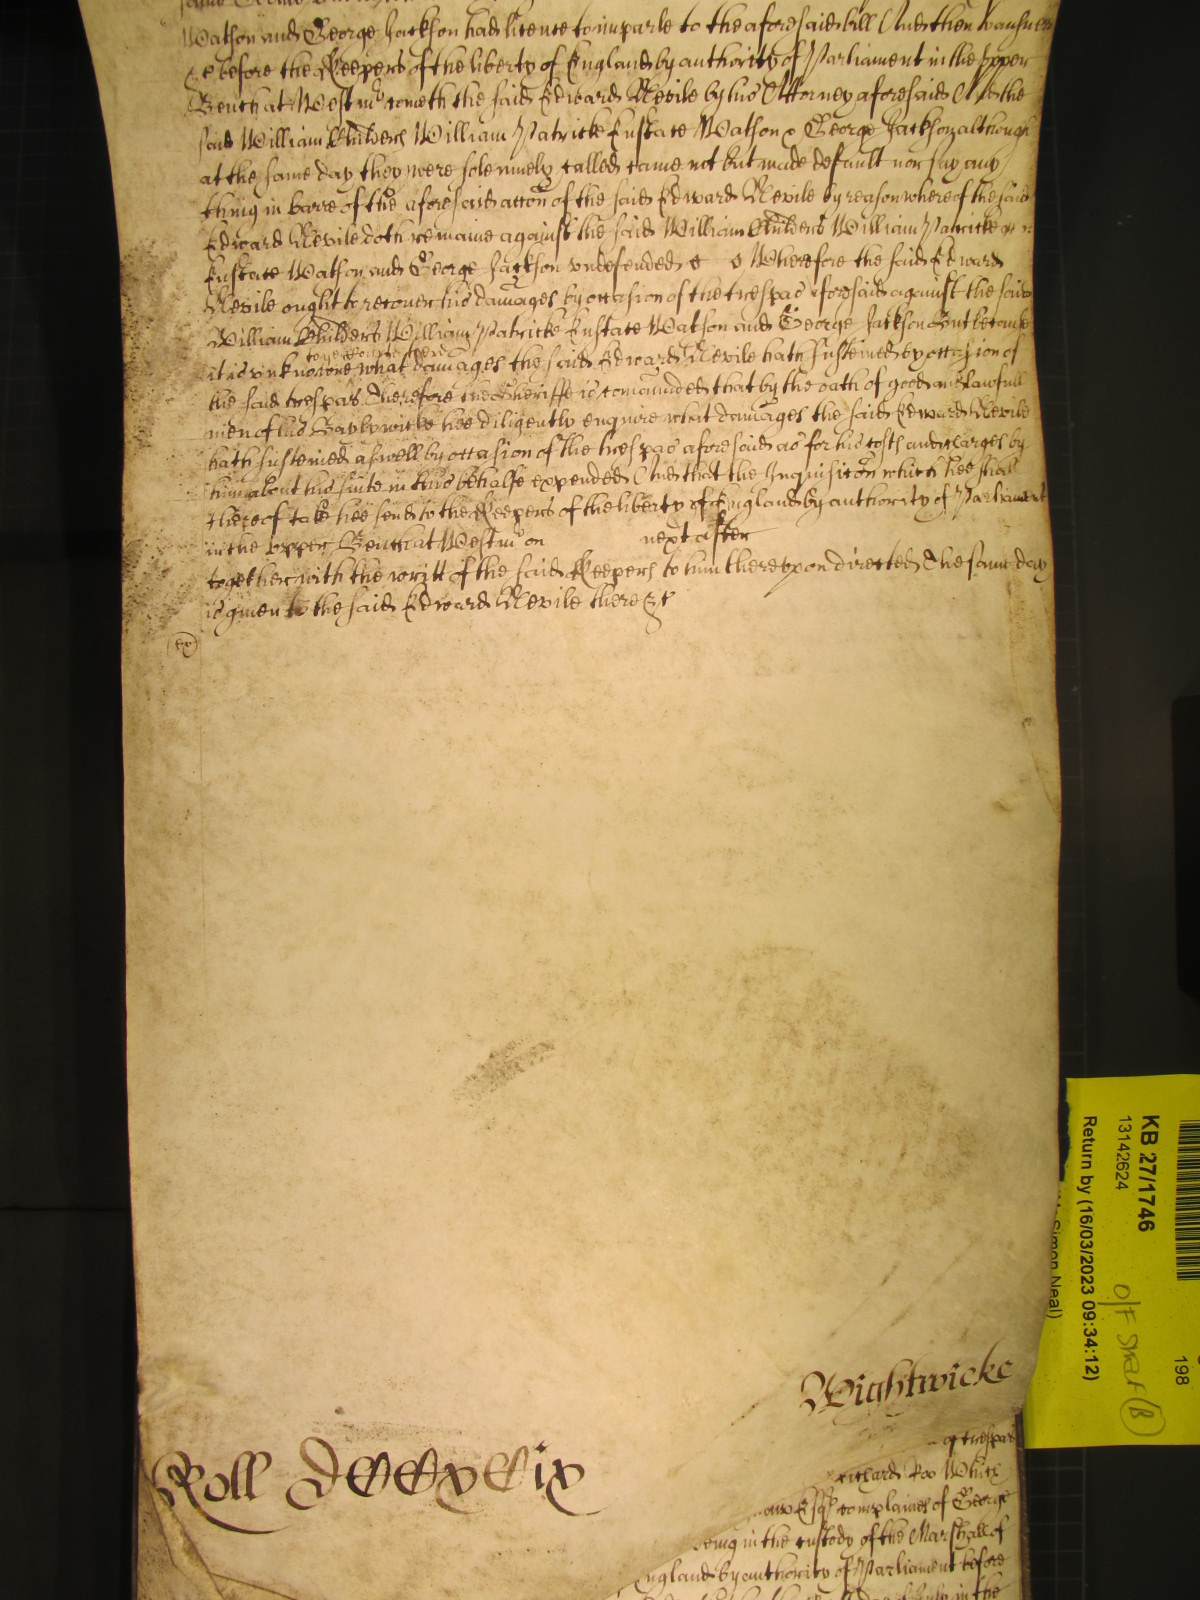 Watson and George Jackson had licence to imparle to the aforesaid bill And then to answere
&c before the Keepers of the liberty of England by authority of Parliament in the Upper
Bench at Westmr cometh the said Edward Nevile by his Attorney aforesaid And the
said William Childers William Patricke Eustace Watson & George Jackson although
at the same day they were solemnely called came not but made default nor say any
thing in barre of the aforesaid accon of the said Edward Nevile by reason whereof the said
Edward Nevile doth remaine against the said William Childers William Patricke
Eustace Watson and George Jackson vndefended Wherefore the said Edward
Nevile ought to recover his damages by occasion of the trespas aforesaid against the said
William Childers William Patricke Eustace Watson and George Jackson But because
it is vnknowne what damages the said Edward Nevile hath susteined by occasion of
the said trespas Therefore the Sheriffe is comaunded that by the oath of good and lawfull
men of his Baylywicke hee diligently enquire what damages the said Edward Nevile
hath susteined aswell by occasion of the trespas aforesaid as for his costs and charges by
him about his suite in this behalfe expended And that the Inquisicon which hee shall
thereof take hee send to the Keepers of the liberty of England by authority of Parliament
in the vpper Bench at Westmr on next after
together with the writt of the said Keepers to him therevpon directed The same day
is given to the said Edward Nevile there &c
Wightwicke
Roll DCCxCix
trespas
Richard Fox
Esqr complaines of George
being in the custody of the Marshall of
England by authority of Parliament before
in the
KB 27/1746
13142624
Return by (16/03/2023 09:34:12)
Simon Neal)
O/F Start B
198